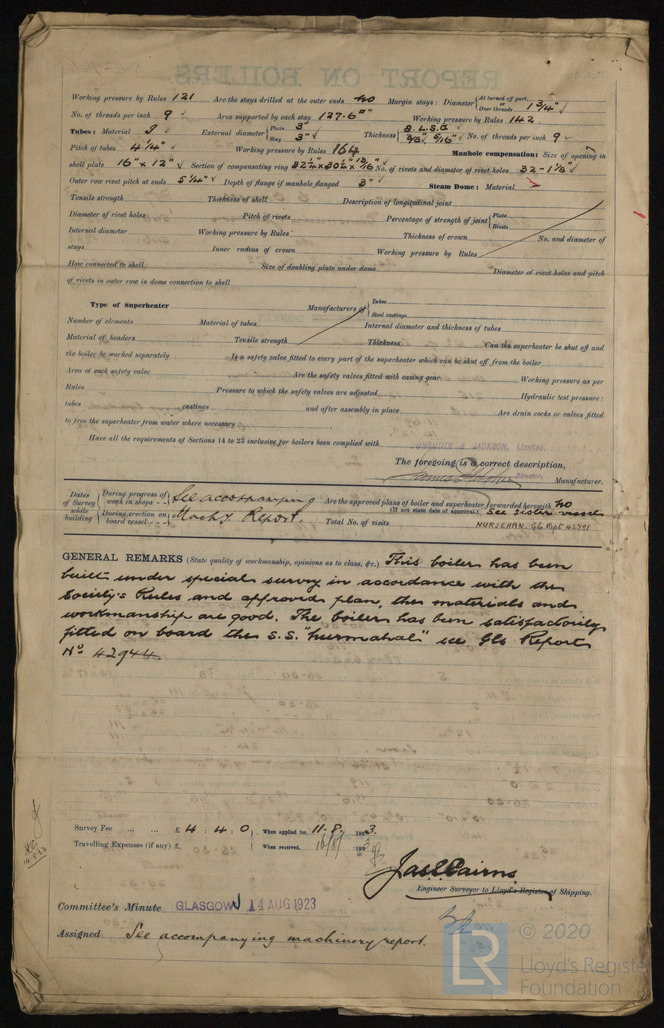 REPORT ON BOILERS
Working pressure by Rules 121 Are the stays drilled at the outer ends No Margin stays: Diameter { At turned off part, or Over threads 1 3/4"
No. of threads per inch 9 Area supported by each stay 127.6 □" Working pressure by Rules 142
Tubes: Material External diameter { Plain 3" Stay 3" Thickness { 8 L.S.G. 5/16" No. of threads per inch 9
Pitch of tubes 4 1/4" Working pressure by Rules 164 Manhole compensation: Size of opening in
shell plate 16" x 12" Section of compensating ring No. of rivets and diameter of rivet holes 32 - 1 1/8"
Outer row rivet pitch at ends 5 1/4" Depth of flange if manhole flanged 3" Steam Dome: Material
Tensile strength Thickness of shell Description of longitudinal joint
Diameter of rivet holes Pitch of rivets Percentage of strength of joint { Plate Rivets
Internal diameter Working pressure by Rules Thickness of crown No. and diameter of
stays Inner radius of crown Working pressure by Rules
How connected to shell, Size of doubling plate under dome Diameter of rivet holes and pitch
of rivets in outer row in dome connection to shell
Type of Superheater Manufacturers of { Tubes Steel castings
Number of elements Material of tubes Internal diameter and thickness of tubes
Material of headers Tensile strength Thickness Can the superheater be shut off and
the boiler be worked separately Is a safety valve fitted to every part of the superheater which can be shut off from the boiler
Area of each safety valve Are the safety valves fitted with easing gear Working pressure as per
Rules Pressure to which the safety valves are adjusted Hydraulic test pressure:
tubes castings and after assembly in place Are drain cocks or valves fitted
to free the superheater from water where necessary
Have all the requirements of Sections 14 to 23 inclusive for boilers been complied with
DUNSMUIR & JACKSON, Limited.
The foregoing is a correct description,
Director, Manufacturer.
Dates of Survey while building { During progress of work in shops - - See accompanying Are the approved plans of boiler and superheater forwarded herewith No
(If not state date of approval.) See sister vessel
During erection on board vessel - - - Machy Report. Total No. of visits NURJEHAN. Gls Rept. 42791
GENERAL REMARKS (State quality of workmanship, opinions as to class, &c.) This boiler has been
built under special survey in accordance with the
Society's Rules and approved plan, the materials and
workmanship are good. The boiler has been satisfactorily
fitted on board the S.S. "Nurmahal" see Gls Report
No 42944.
Survey Fee ... ... £ 4 : 4 : 0 When applied for, 11.8. 1923.
Travelling Expenses (if any) £ When received, 192
Jas Cairns
Engineer Surveyor to Lloyd's Register of Shipping.
Committee's Minute GLASGOW 14 AUG 1923
Assigned See accompanying machinery report.
© 2020
LR
Lloyd's Register
Foundation